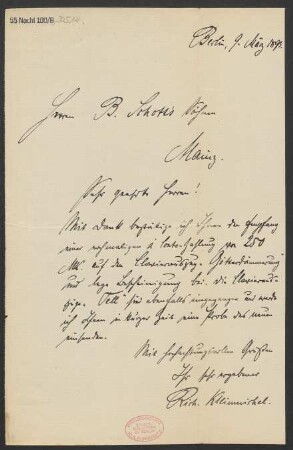 55 Nachl 100/B
Berlin, 9. März 1891.
Herrn B. Schott's Söhne
Mainz.
Sehr geehrte Herren!
Mit Dank bestätige ich Ihnen den Empfang
einer nochmaligen à Conto-Zahlung von 250
Mk auf den Clavierauszug „Götterdämmerung"
und lege Bescheinigung bei. Die Clavieraus-
züge „Tell" sind ebenfalls eingegangen und werde
ich Ihnen in kurzer Zeit eine Probe des neuen
einsenden.
Mit hochachtungsvollen Grüßen
Ihr sehr ergebener
Rich. Kleinmichel.